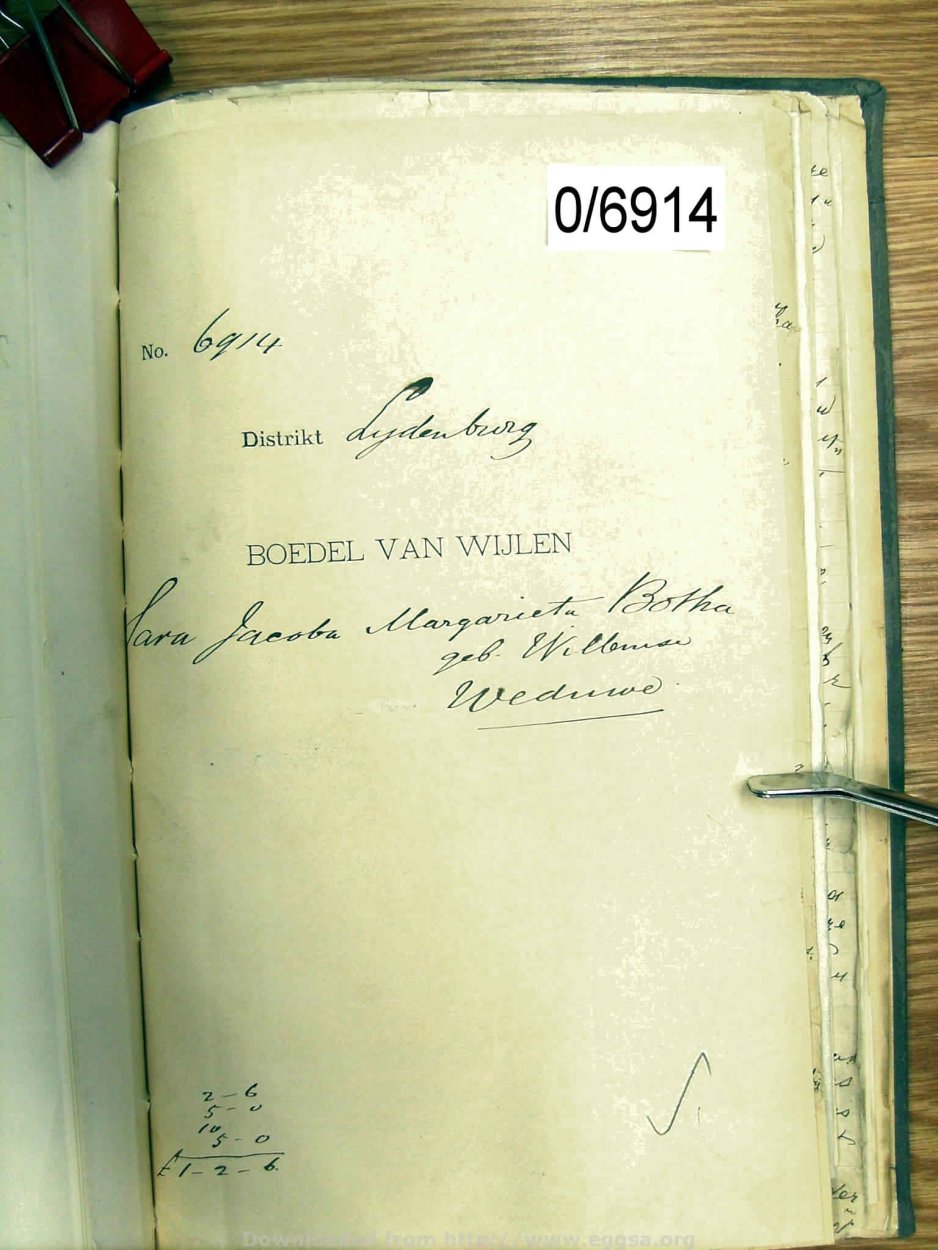 0/6914
No. 6914
Distrikt Lydenburg
BOEDEL VAN WIJLEN
Sara Jacoba Margarieta Botha
geb. Willemse
Weduwe
2-6
5-0
10
5-0
£1-2-6.
Downloaded from http://www.eggsa.org